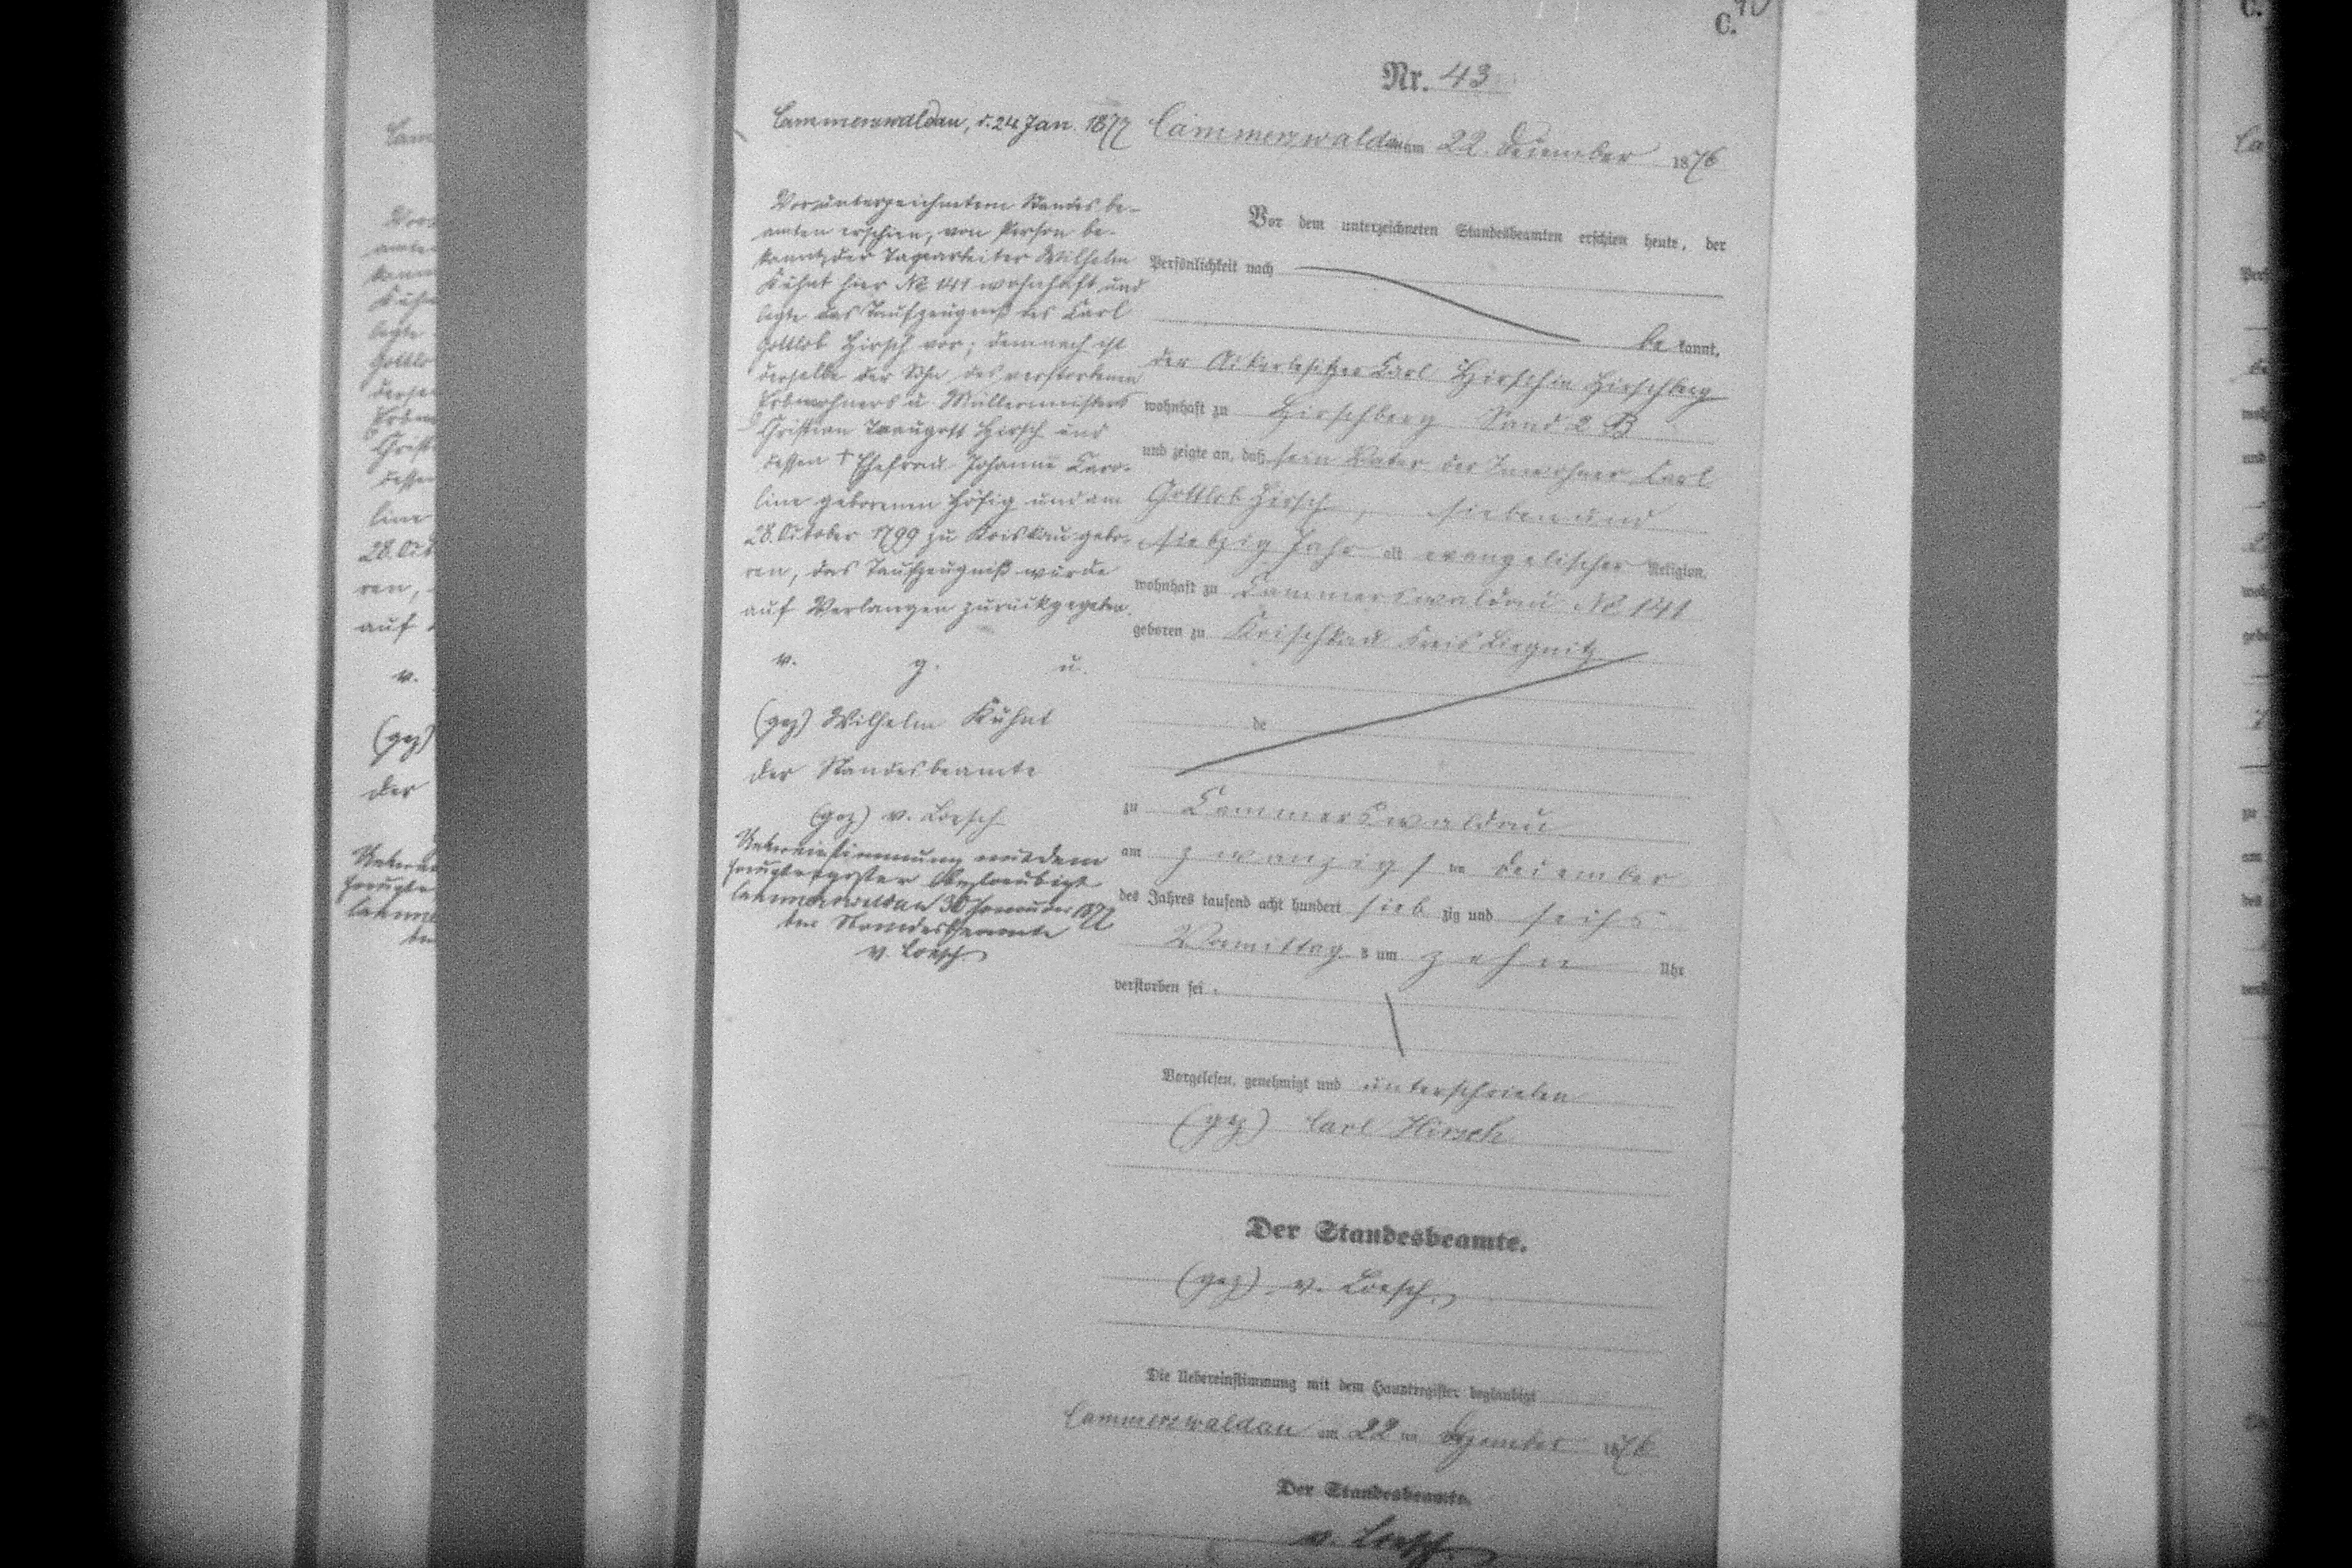 C.
Nr. 43
Cammerswaldau am 22. December 1876
Vor dem unterzeichneten Standesbeamten erschien heute, der
Persönlichkeit nach
be kannt,
der Ackerbesitzer Carl Hirsch in Hirschberg
wohnhaft zu Hirschberg Sand 2 B
und zeigte an, daß sein Vater der Inwohner Carl
Gottlob Hirsch, sieben und
siebzig Jahr alt evangelischer Religion,
wohnhaft zu Cammerswaldau No 141
geboren zu Krischkau Kreis Liegnitz
de
zu Cammerswaldau
am zwanzigsten December
des Jahres tausend acht hundert sieb zig und sechs
Vormittags um zehn Uhr
verstorben sei.
Vorgelesen, genehmigt und unterschrieben
(gez) Carl Hirsch
Der Standesbeamte.
(gez) v. Loesch
Die Uebereinstimmung mit dem Hauptregister beglaubigt
Cammerswaldau am 22 ten Dezember 1876
Der Standesbeamte.
v. Loesch
Cammerswaldau, d. 24 Jan. 1877
Vor unterzeichnetem Standesbe-
amten erschien, von Person be-
kannt, der Tagearbeiter Wilhelm
Kühnt hier No 141 wohnhaft und
legte das Taufzeugniß des Carl
Gottlob Hirsch vor; demnach ist
derselbe der Sohn des verstorbenen
Erbwohners u. Müllermeisters
Christian Traugott Hirsch und
dessen † Ehefrau Johanne Caro-
line geborenen Höfig und am
28. October 1799 zu Kriskau gebo-
ren, das Taufzeugniß wurde
auf Verlangen zurückgegeben.
v. g. u.
(gez) Wilhelm Kühnt
Der Standesbeamte
(gez) v. Loesch
Uebereinstimmung mit dem
Hauptregister beglaubigt
Cammerswaldau 30 Januar 1877
Der Standesbeamte
v. Loesch